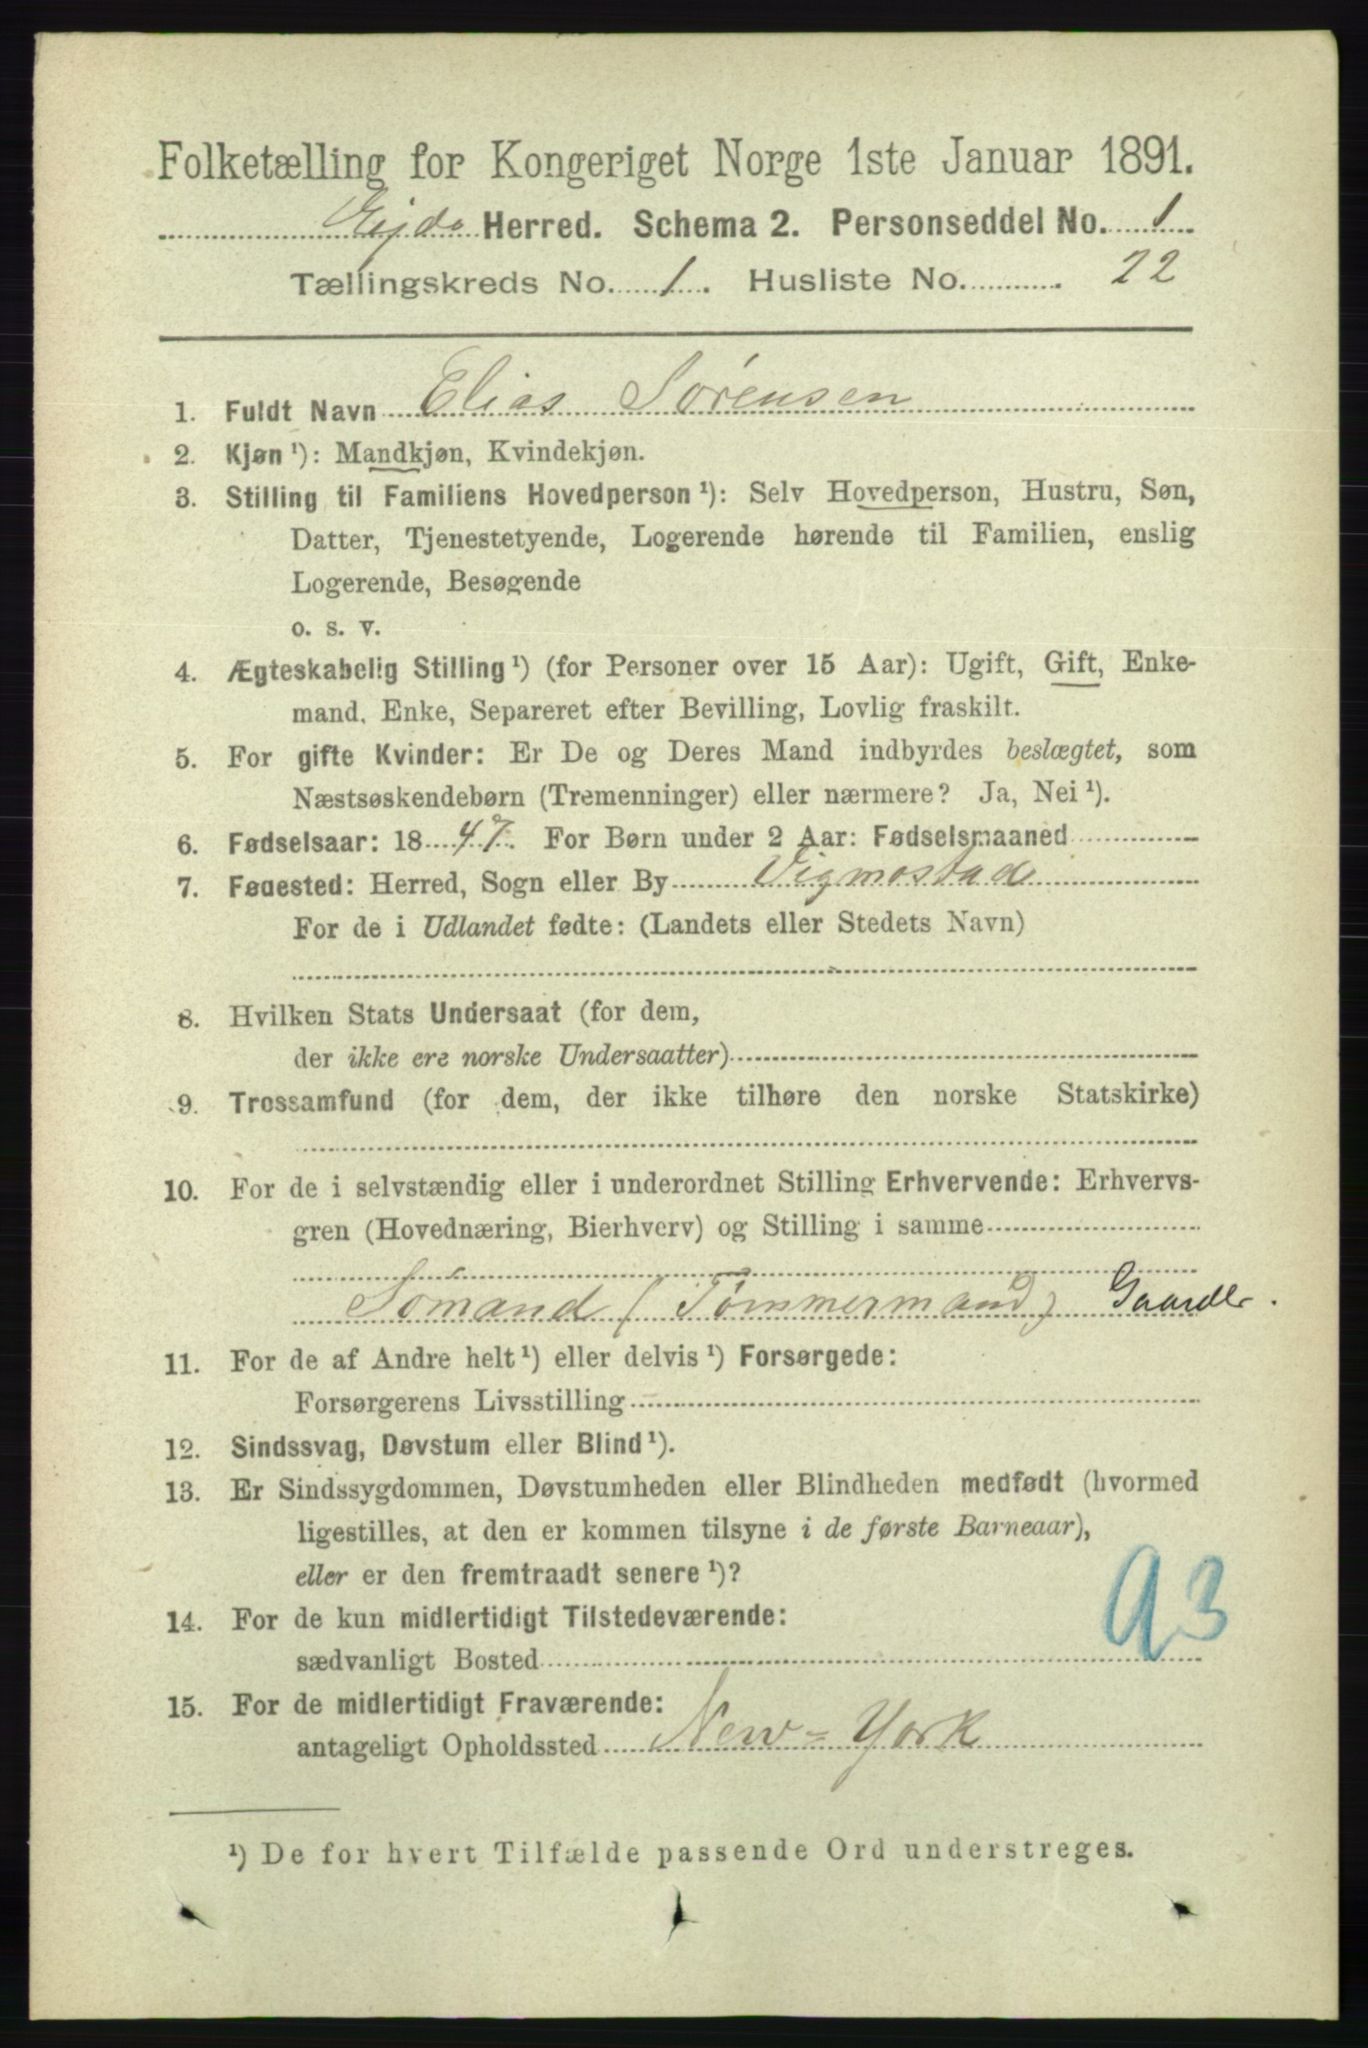 Folketælling for Kongeriget Norge 1ste Januar 1891.
Ejde Herred. Schema 2. Personseddel No. 1
Tællingskreds No. 1. Husliste No. 22
1. Fuldt Navn Elias Sörensen
2. Kjøn ¹): Mandkjøn, Kvindekjøn.
3. Stilling til Familiens Hovedperson ¹): Selv Hovedperson, Hustru, Søn,
Datter, Tjenestetyende, Logerende hørende til Familien, enslig
Logerende, Besøgende
o. s. v.
4. Ægteskabelig Stilling ¹) (for Personer over 15 Aar): Ugift, Gift, Enke-
mand, Enke, Separeret efter Bevilling, Lovlig fraskilt.
5. For gifte Kvinder: Er De og Deres Mand indbyrdes beslægtet, som
Næstsøskendebørn (Tremenninger) eller nærmere? Ja, Nei ¹).
6. Fødselsaar: 1847. For Børn under 2 Aar: Fødselsmaaned
7. Fødested: Herred, Sogn eller By Vigmostad
For de i Udlandet fødte: (Landets eller Stedets Navn)
8. Hvilken Stats Undersaat (for dem,
der ikke ere norske Undersaatter)
9. Trossamfund (for dem, der ikke tilhøre den norske Statskirke)
10. For de i selvstændig eller i underordnet Stilling Erhvervende: Erhvervs-
gren (Hovednæring, Bierhverv) og Stilling i samme
Sömand (Tömmermand) Gaardbr.
11. For de af Andre helt ¹) eller delvis ¹) Forsørgede:
Forsørgerens Livsstilling
12. Sindssvag, Døvstum eller Blind ¹).
13. Er Sindssygdommen, Døvstumheden eller Blindheden medfødt (hvormed
ligestilles, at den er kommen tilsyne i de første Barneaar),
eller er den fremtraadt senere ¹)?
14. For de kun midlertidigt Tilstedeværende:
sædvanligt Bosted
93
15. For de midlertidigt Fraværende:
antageligt Opholdssted New=York
¹) De for hvert Tilfælde passende Ord understreges.